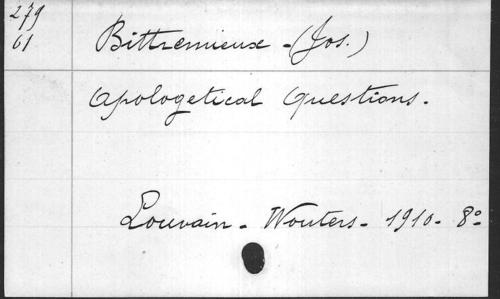 279
61
Bittremieux - (Jos.)
Apologetical Questions.
Louvain - Wouters - 1910 - 8º